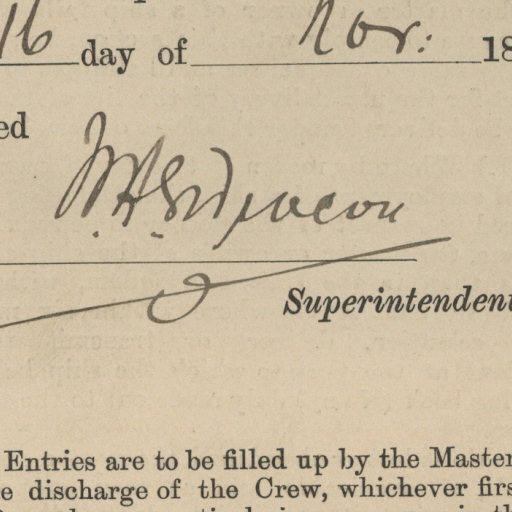 16 day of Nov. 18
ed
Superintendent
Entries are to be filled up by the Master
e discharge of the Crew, whichever firs